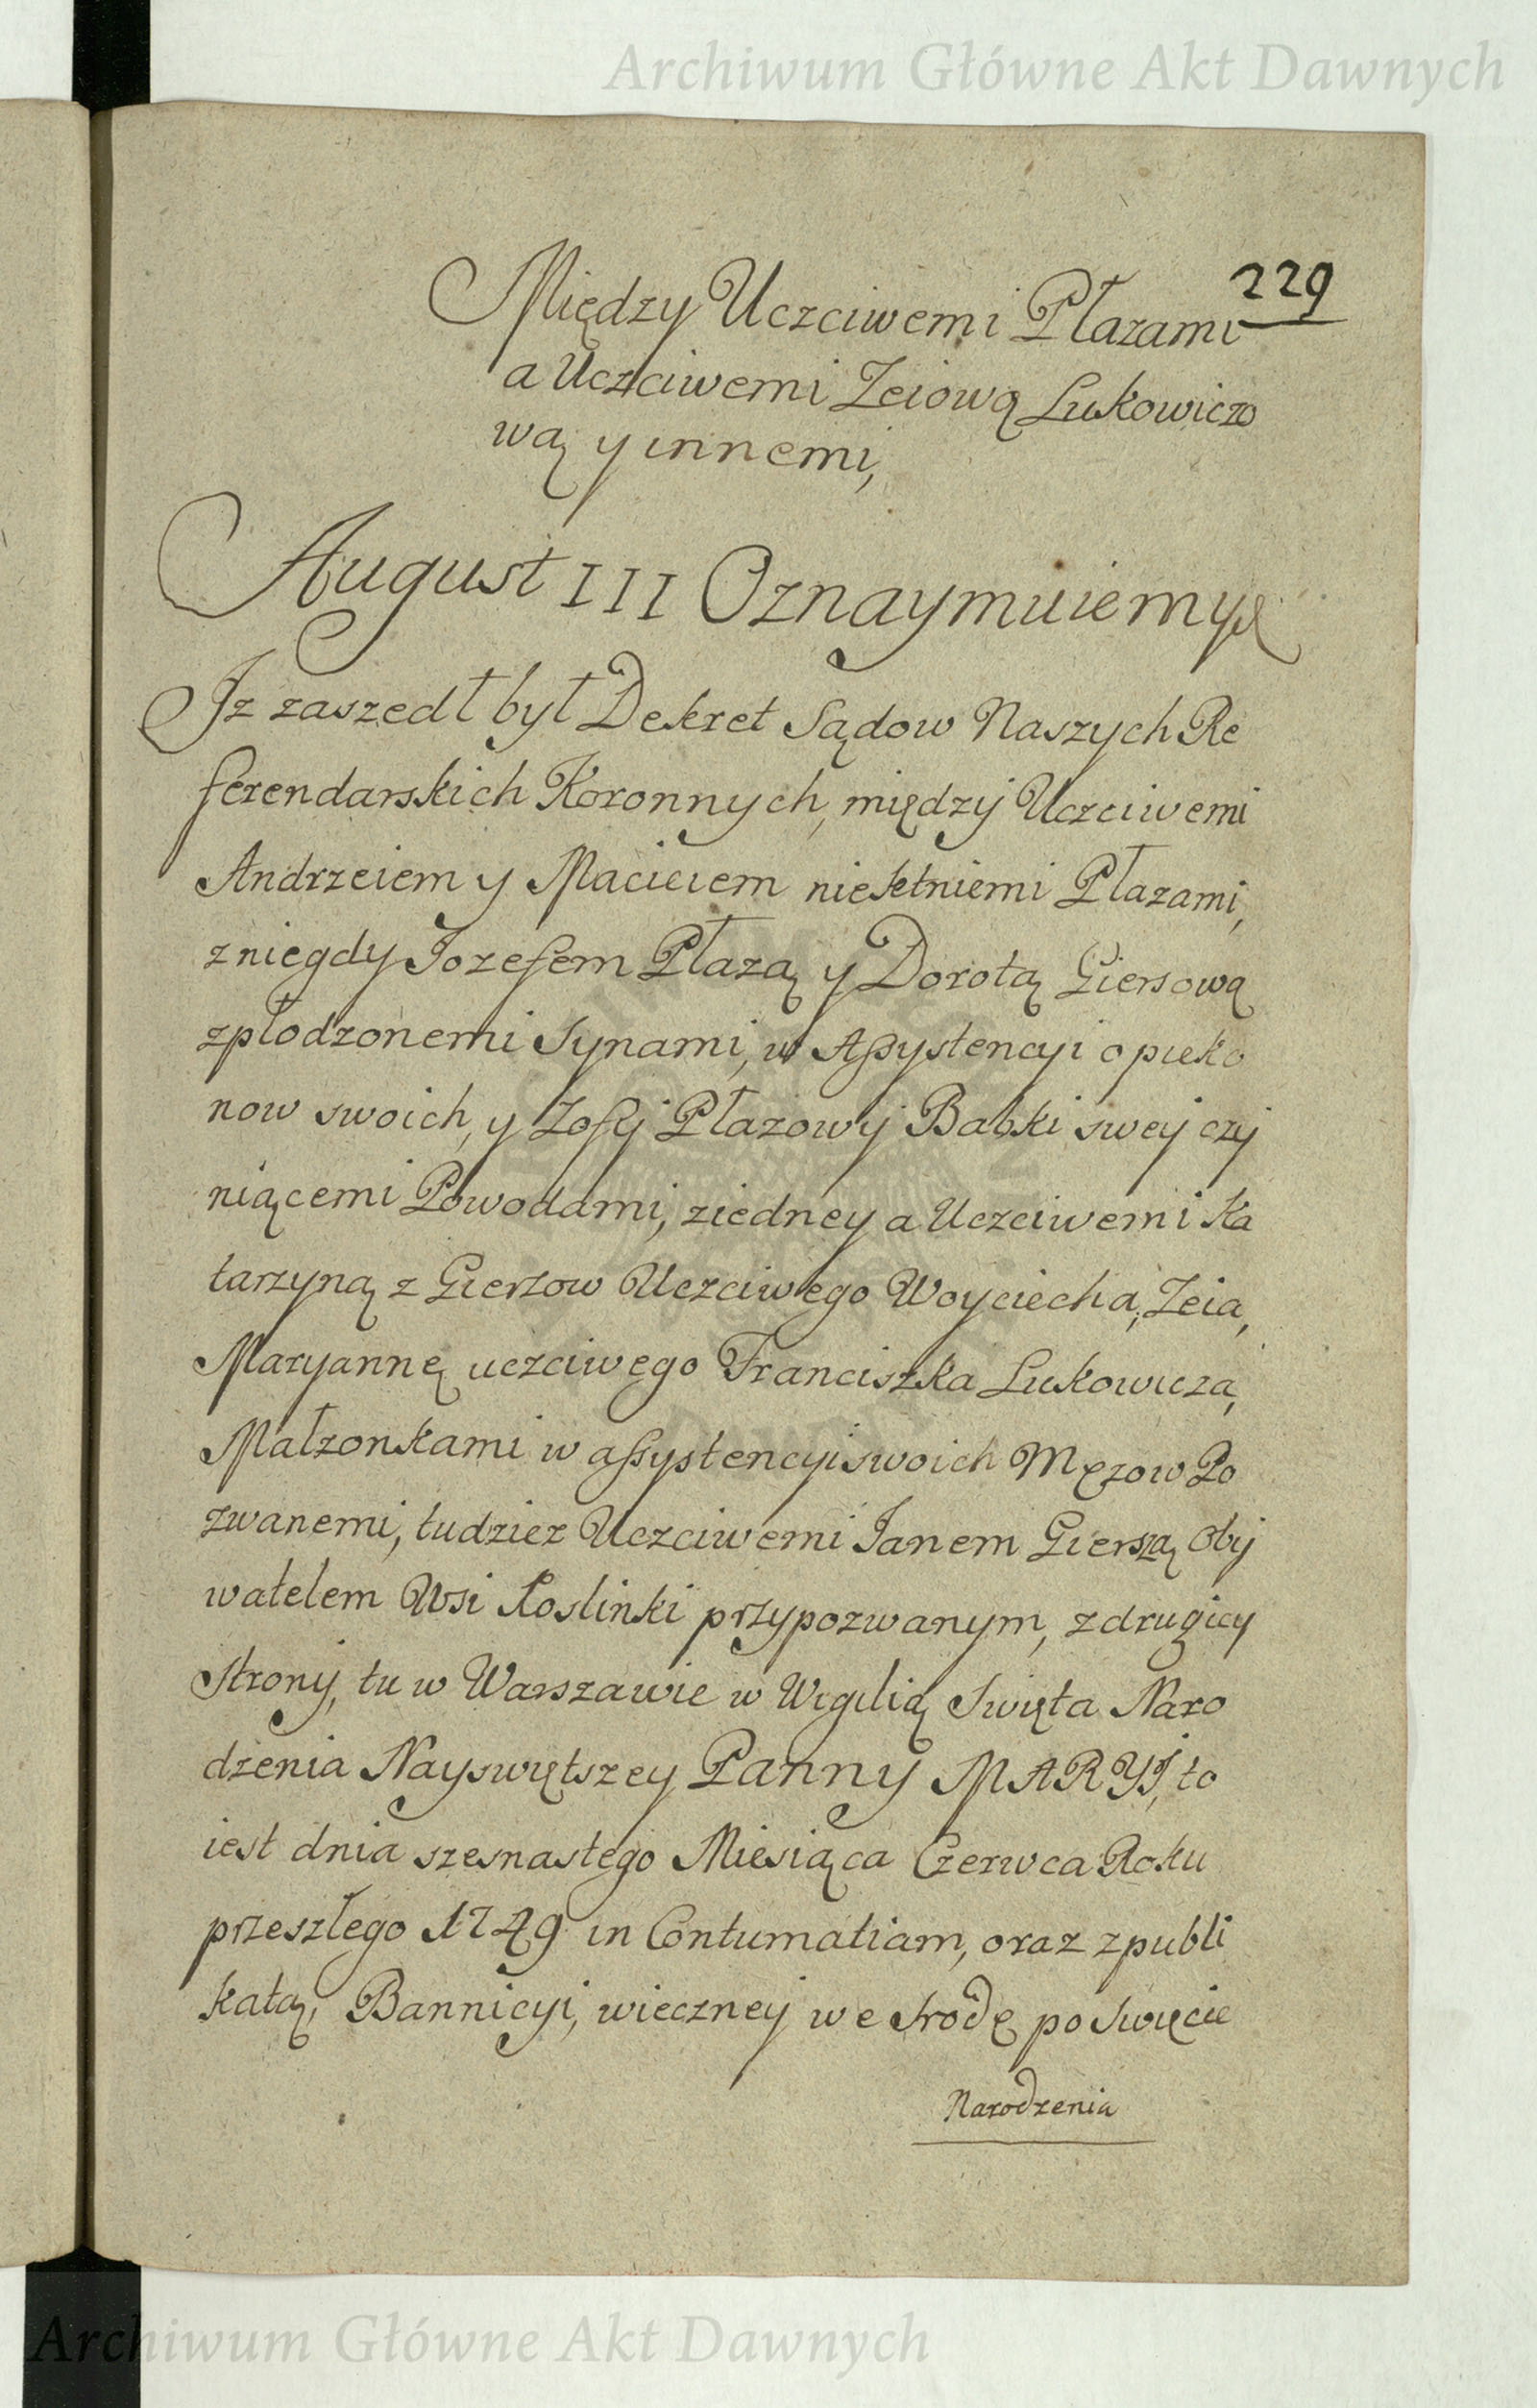 Archiwum Główne Akt Dawnych
229
Między Uczciwemi Płazami
a Uczciwemi Zeiową Lukowiczo
wą y innemi,
August III Oznaymuiemy
Jz zaszedł był Dekret Sądow Naszych Re
ferendarskich Koronnych, między Uczciwemi
Andrzeiem y Macieiem nieletniemi Płazami,
z niegdy Jozefem Płazą y Dorotą Giersową
zpłodzonemi Synami, w Assystencyi opieku
now swoich, y Zofij Płazowy Babki swey czy
niącemi Powodami, ziedney a Uczciwemi Ka
tarzyną z Gierszow Uczciwego Woyciecha, Zeia,
Maryannę uczciwego Franciszka Lukowicza,
Małzonkami w assystencyi swoich Męzow Po
zwanemi, tudziez Uczciwemi Janem Gierszą Oby
watelem Wsi Roslinki przypozwanym, z drugiey
Strony, tu w Warszawie w Wigilią Swięta Naro
dzenia Nayswiętszey Panny MARYI, to
iest dnia szesnastego Miesiąca Czerwca Roku
przeszłego 1749 in Contumatiam, oraz zpubli
katą, Bannicyi, wieczney we Srodę po Swięcie
Narodzenia
Archiwum Główne Akt Dawnych